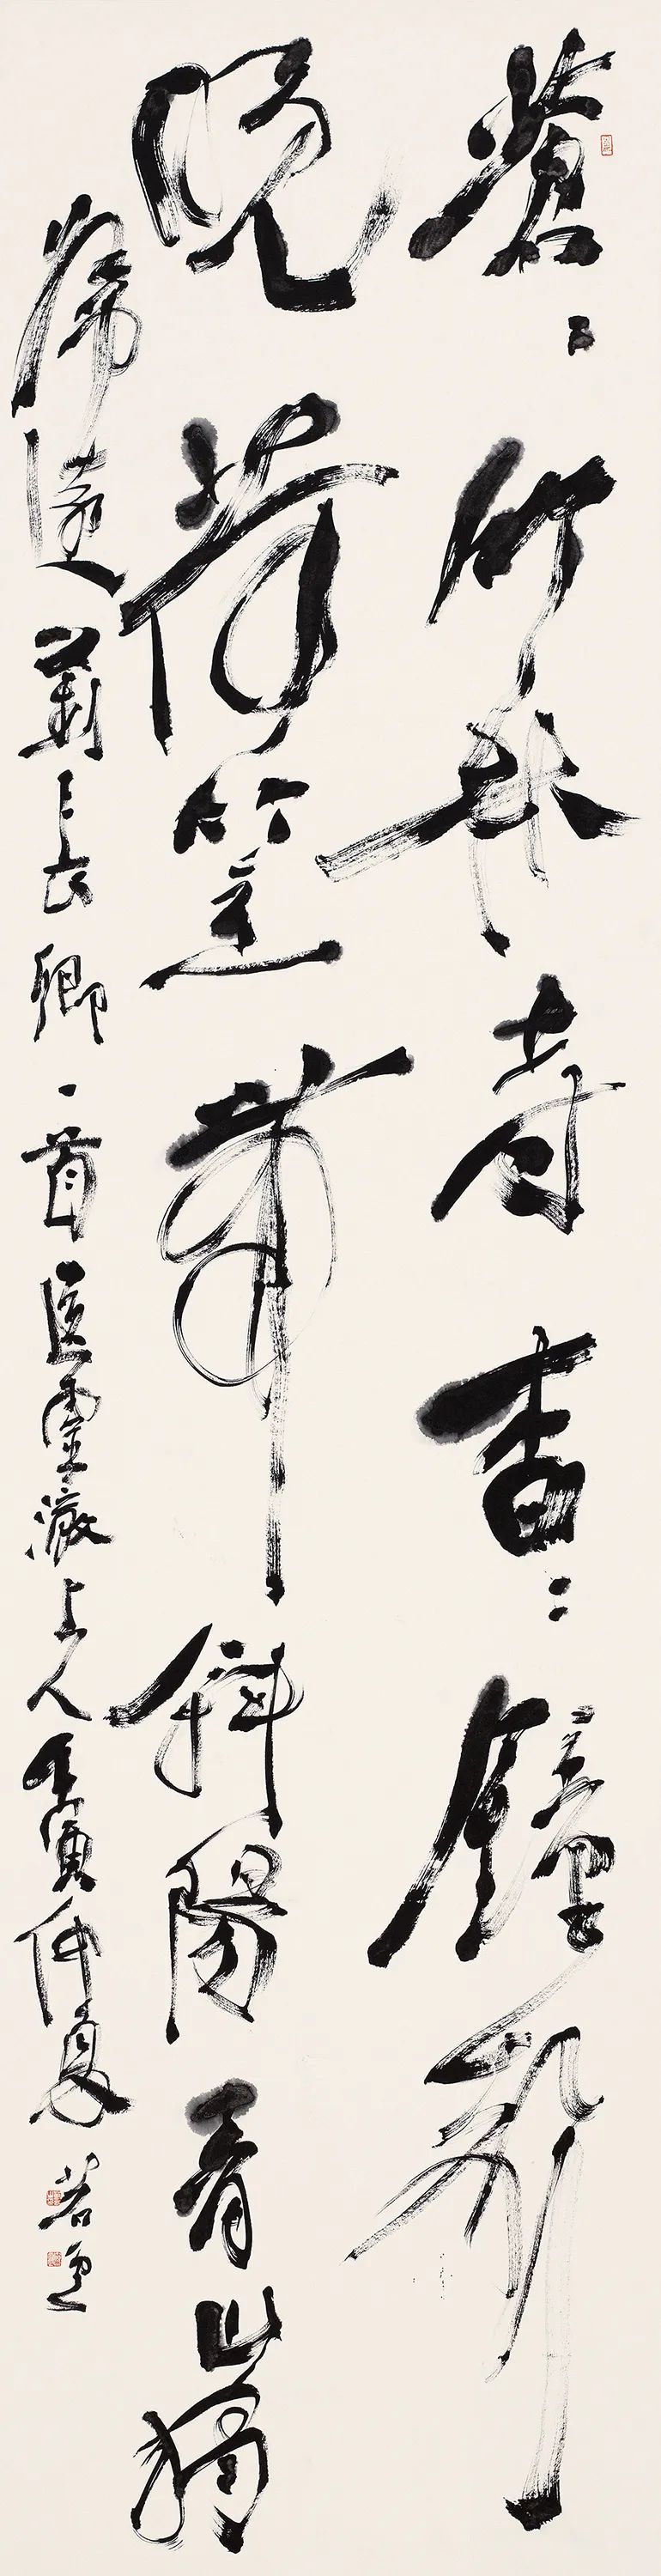 蒼〻竹林寺杳〻鐘聲
晚荷笠帶斜陽青山獨
歸遠劉長卿一首送靈澈上人壬寅仲夏若